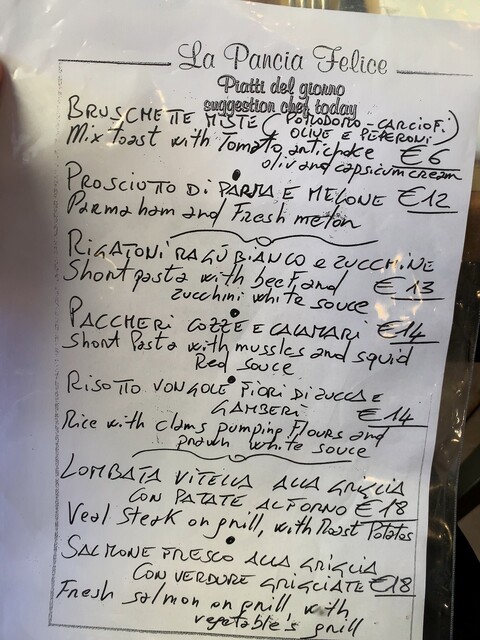 La Pancia Felice
Piatti del giorno
suggestion chef today
BRUSCHETTE MISTE (POMODORO-CARCIOFI
OLIVE E PEPERONI)
Mix toast with Tomato antichoke €6
oliv and capsicum cream
PROSCIUTTO DI PARMA E MELONE €12
Parma ham and Fresh melon
RIGATONI RAGÙ BIANCO e ZUCCHINE
Short pasta with beef and €13
zucchini white souce
PACCHERI COZZE E CALAMARI €14
Short Pasta with mussles and squid
Red souce
RISOTTO VONGOLE FIORI DI ZUCCA E
GAMBERI €14
Rice with clams pumping Flours and
prawn white souce
LOMBATA VITELLA ALLA GRIGLIA
CON PATATE AL FORNO €18
Veal Steak on grill, with Roast Potatos
SALMONE FRESCO ALLA GRIGLIA
CON VERDURE GRIGLIATE €18
Fresh salmon on grill, with
vegetable's grill